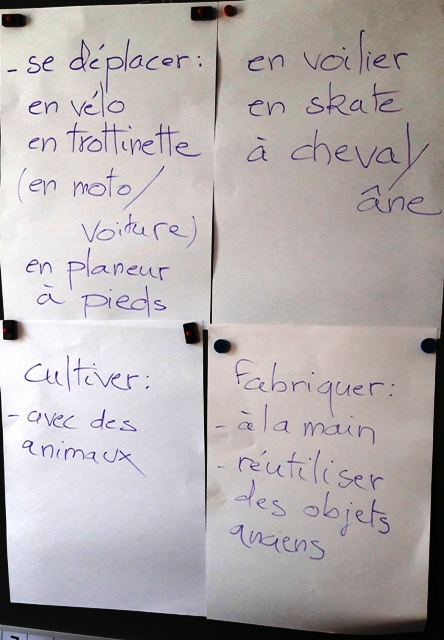 - se déplacer:
en vélo
en trottinette
(en moto/
voiture)
en planeur
à pieds
en voilier
en skate
à cheval/
âne
cultiver:
- avec des
animaux
fabriquer:
- à la main
- réutiliser
des objets
anciens